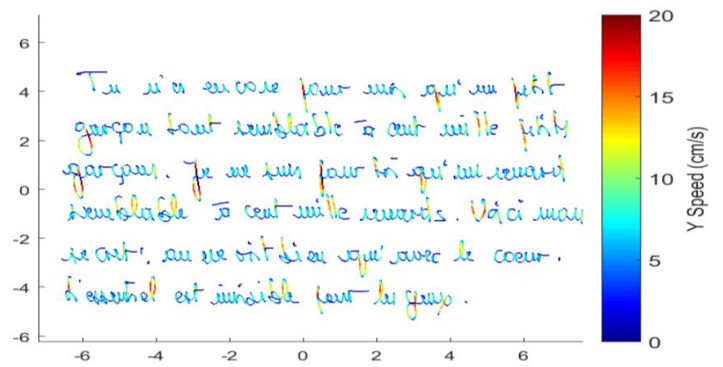 20
6
Tu n'es encore pour moi qu'un petit
4
15
garçon tout semblable à cent mille petits
2
garçons. Je ne suis pour toi qu'un renard
0
10
Y Speed (cm/s)
semblable à cent mille renards. Voici mon
-2
secret : on ne voit bien qu'avec le coeur.
5
-4
l'essentiel est invisible pour les yeux.
-6
0
-6 -4 -2 0 2 4 6